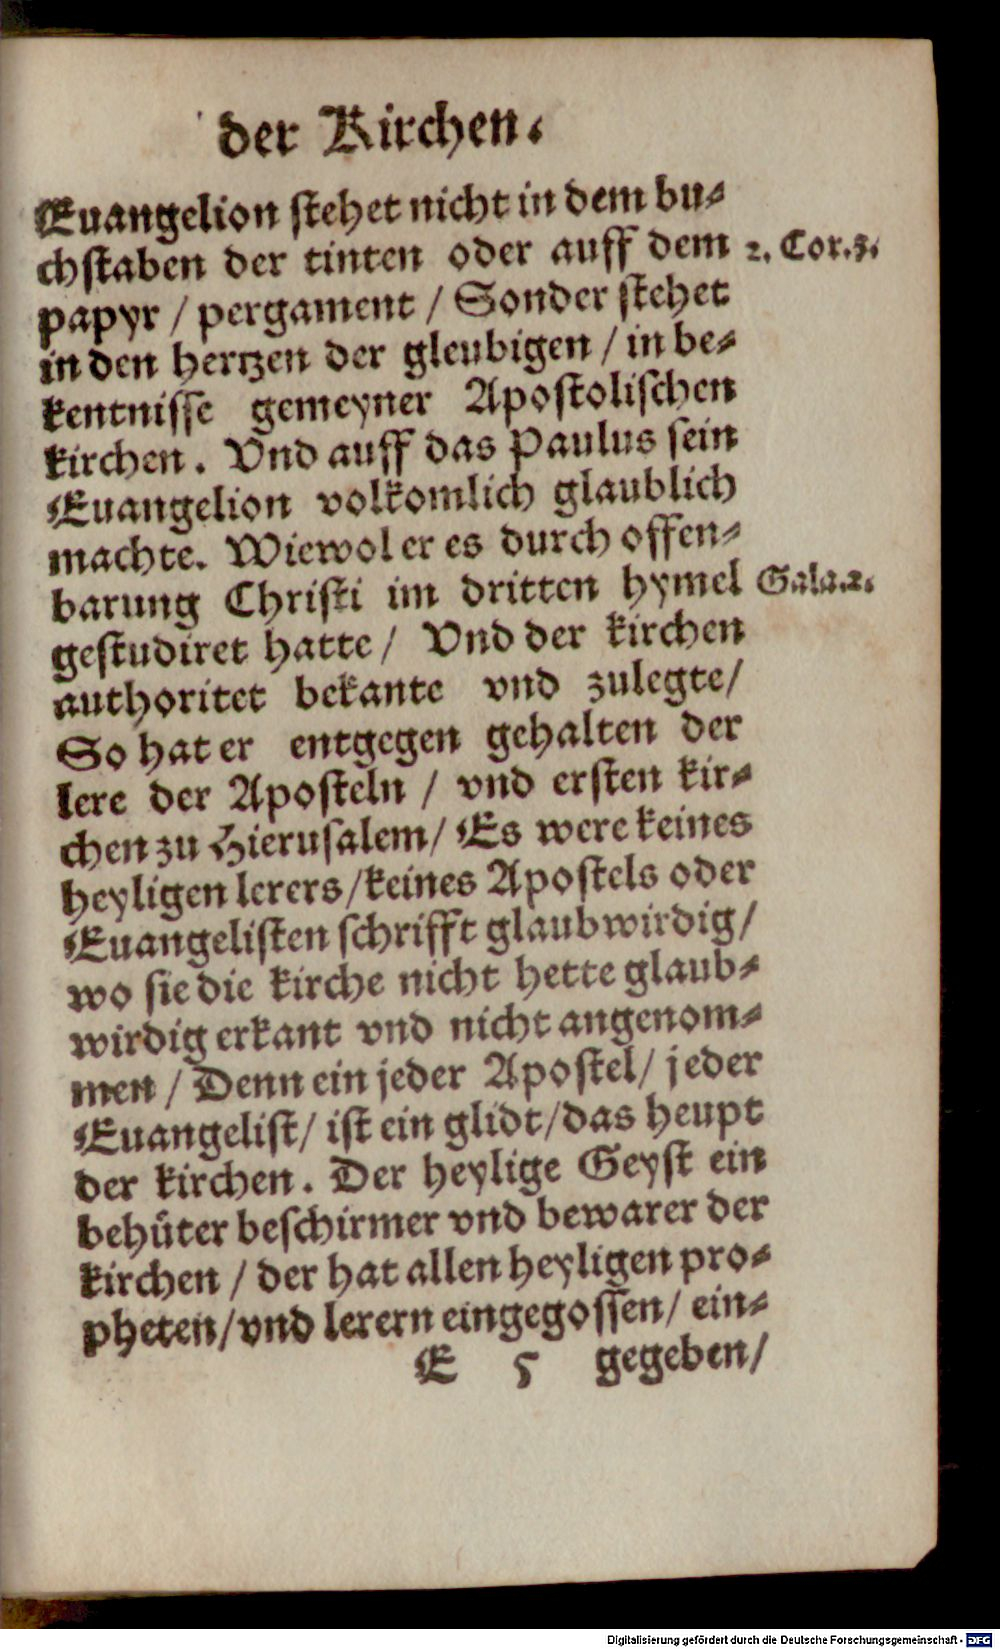 der Kirchen.
Euangelion stehet nicht in dem bu⸗
chstaben der tinten oder auff dem
2. Cor. 3.
papyr / pergament / Sonder stehet
in den hertzen der gleubigen / in be⸗
kentnisse gemeyner Apostolischen
kirchen. Vnd auff das Paulus sein
Euangelion volkomlich glaublich
machte. Wiewol er es durch offen⸗
barung Christi im dritten hymel
Gala. 2.
gestudiret hatte / Vnd der kirchen
authoritet bekante vnd zulegte /
So hat er entgegen gehalten der
lere der Aposteln / vnd ersten kir⸗
chen zu Hierusalem / Es were keines
heyligen lerers / keines Apostels oder
Euangelisten schrifft glaubwirdig /
wo sie die kirche nicht hette glaub⸗
wirdig erkant vnd nicht angenom⸗
men / Denn ein jeder Apostel / jeder
Euangelist / ist ein glidt / das heupt
der kirchen. Der heylige Geyst ein
behüter beschirmer vnd bewarer der
kirchen / der hat allen heyligen pro⸗
pheten / vnd lerern eingegossen / ein⸗
E 5 gegeben /
Digitalisierung gefördert durch die Deutsche Forschungsgemeinschaft - DFG